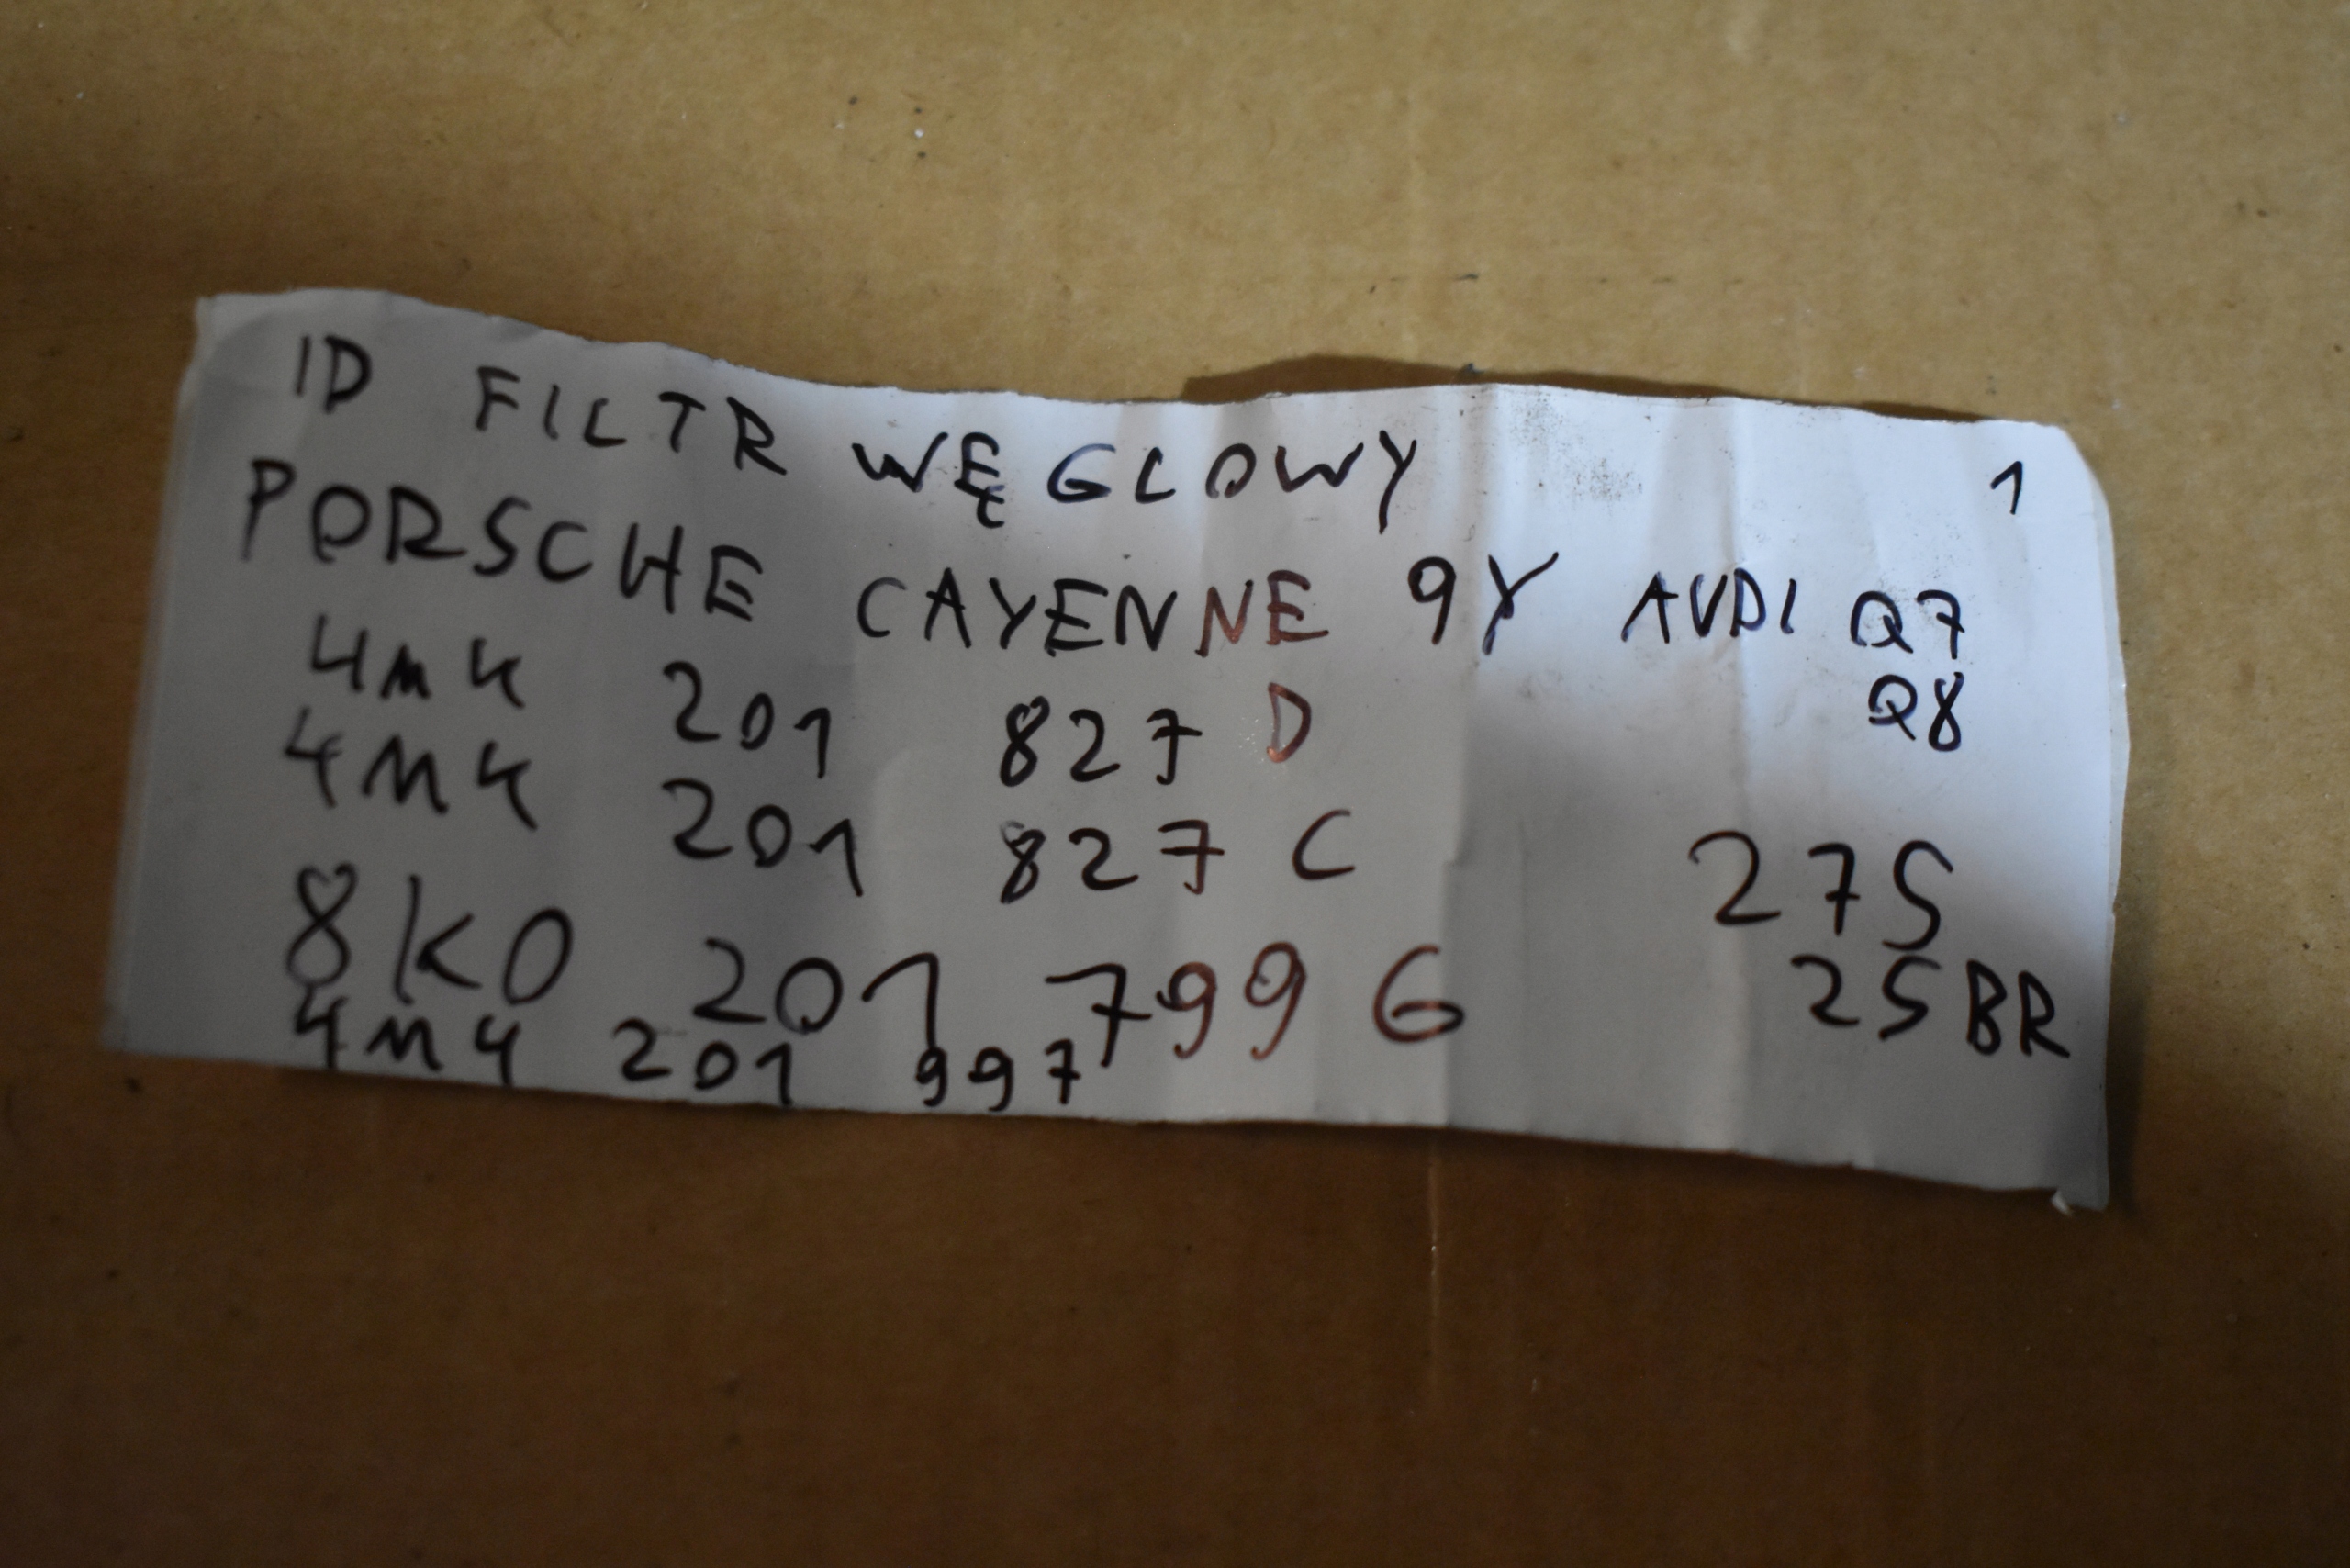 ID FILTR WĘGLOWY 1
PORSCHE CAYENNE 9Y AUDI Q7
Q8
4M4 201 827 D
4M4 201 827 C
27S
8K0 201 799 G
25BR
4M4 201 997